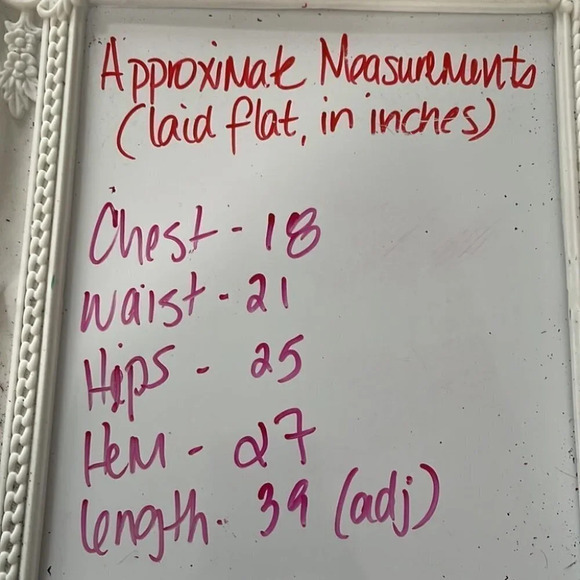 Approximate Measurements
(laid flat, in inches)
Chest - 18
Waist - 21
Hips - 25
Hem - 27
length - 39 (adj)